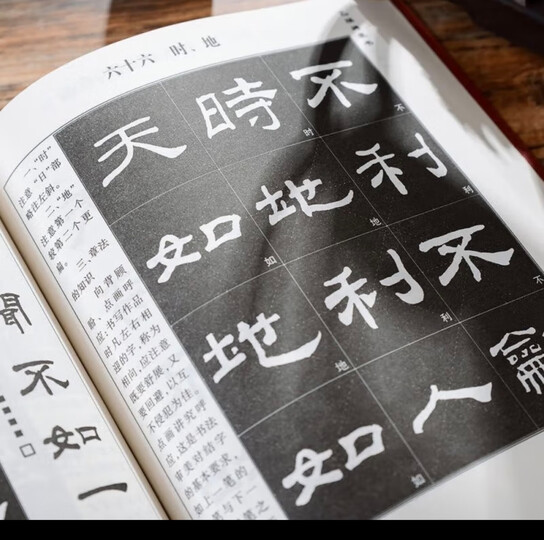 六十六 时、地
一、“时”
注意“日”部
略往左斜。
二、“地”
注意第一个
较第二个更
扁。
三、章法
的知识
向背顾
盼、点画呼
应:书写作品
时凡左右相
迎的字,称为
相向,应注意
既要舒展,又
要回避,以互
不侵犯为佳。
点画讲究呼
应,这是书法
审美对结字
的基本要求,
如上一笔的
笔与下一
笔之
天 時 不
时 不
如 地 利
如 地 利
地 利 不
地 利 不
如 人 龢
如
聞
不
如
一